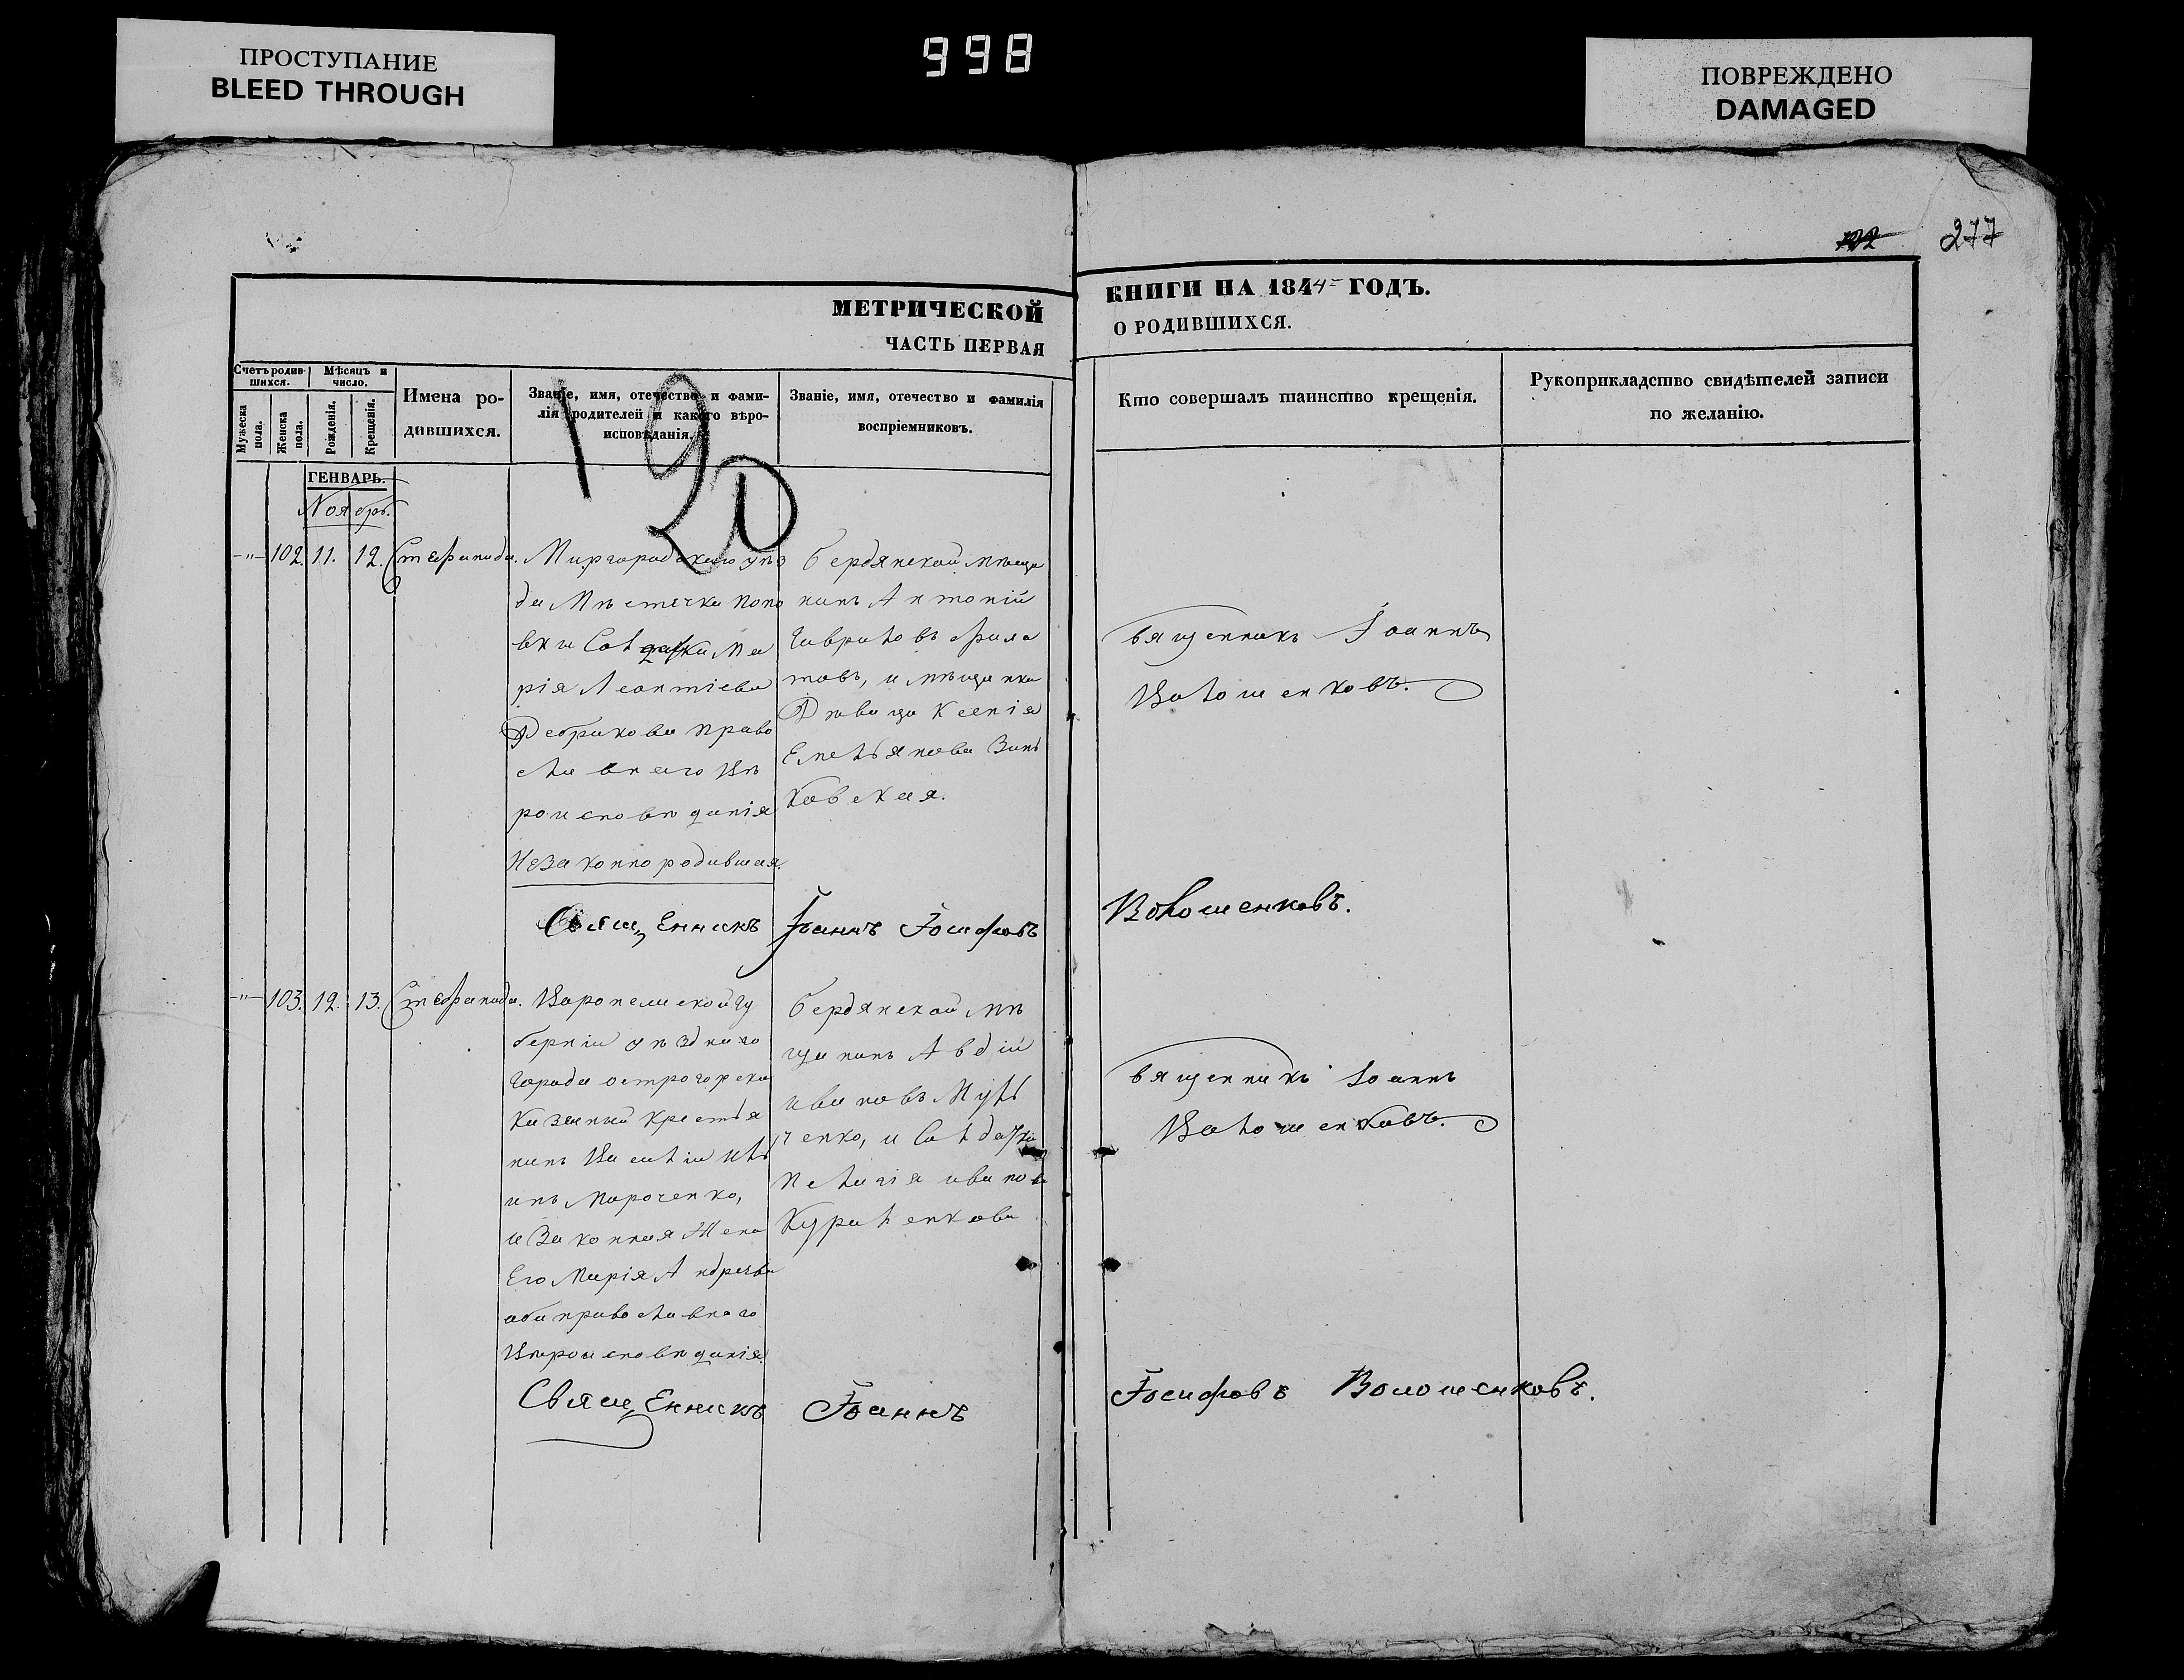 ПРОСТУПАНИЕ
BLEED THROUGH
998
ПОВРЕЖДЕНО
DAMAGED
122
277
МЕТРИЧЕСКОЙ
ЧАСТЬ ПЕРВАЯ
КНИГИ НА 1844 ГОДЪ.
О РОДИВШИХСЯ.
Счетъ родив-
шихся.
Мужеска пола.
Женска пола.
Мѣсяцъ и
число.
Рожденія.
Крещенія.
Имена ро-
дившихся.
Званіе, имя, отечество и фами-
лія родителей и какого вѣро-
исповѣданія.
Званіе, имя, отечество и фамилія
воспріемниковъ.
Кто совершалъ таинство крещенія.
Рукоприкладство свидѣтелей записи
по желанію.
120
ГЕНВАРЬ.
Ноябрь.
-"- 102. 11. 12. Стефанида.
Миргородскаго уѣз
да Мѣстечка Попо
вки Солдатка Ма
рія Леонтіева
Дебрикова право
славнаго вѣ
роисповѣданія
Незаконнородившая.
бердянской мѣща
нинъ Антоній
Гавриловъ Фила
товъ, и мѣщанка
Дѣвица Ксенія
Емельянова Зинь
ковская.
Священникъ Іоаннъ
Волошенковъ.
Священникъ Іоаннъ Іосифовъ Волошенковъ.
-"- 103. 12. 13. Стефанида.
Воронежской гу
берніи уѣзднаго
города острогорска
казенный крестья
нинъ Василій Иль
инъ Мироченко,
и законная жена
Его Марія Андреева
оба православнаго
вѣроисповѣданія.
бердянской мѣ
щанинъ Авдій
ивановъ Муль
ченко, и Солдатка
Пелагія иванова
Куриленкова
Священникъ Іоаннъ
Волошенковъ.
Священникъ Іоаннъ Іосифовъ Волошенковъ.